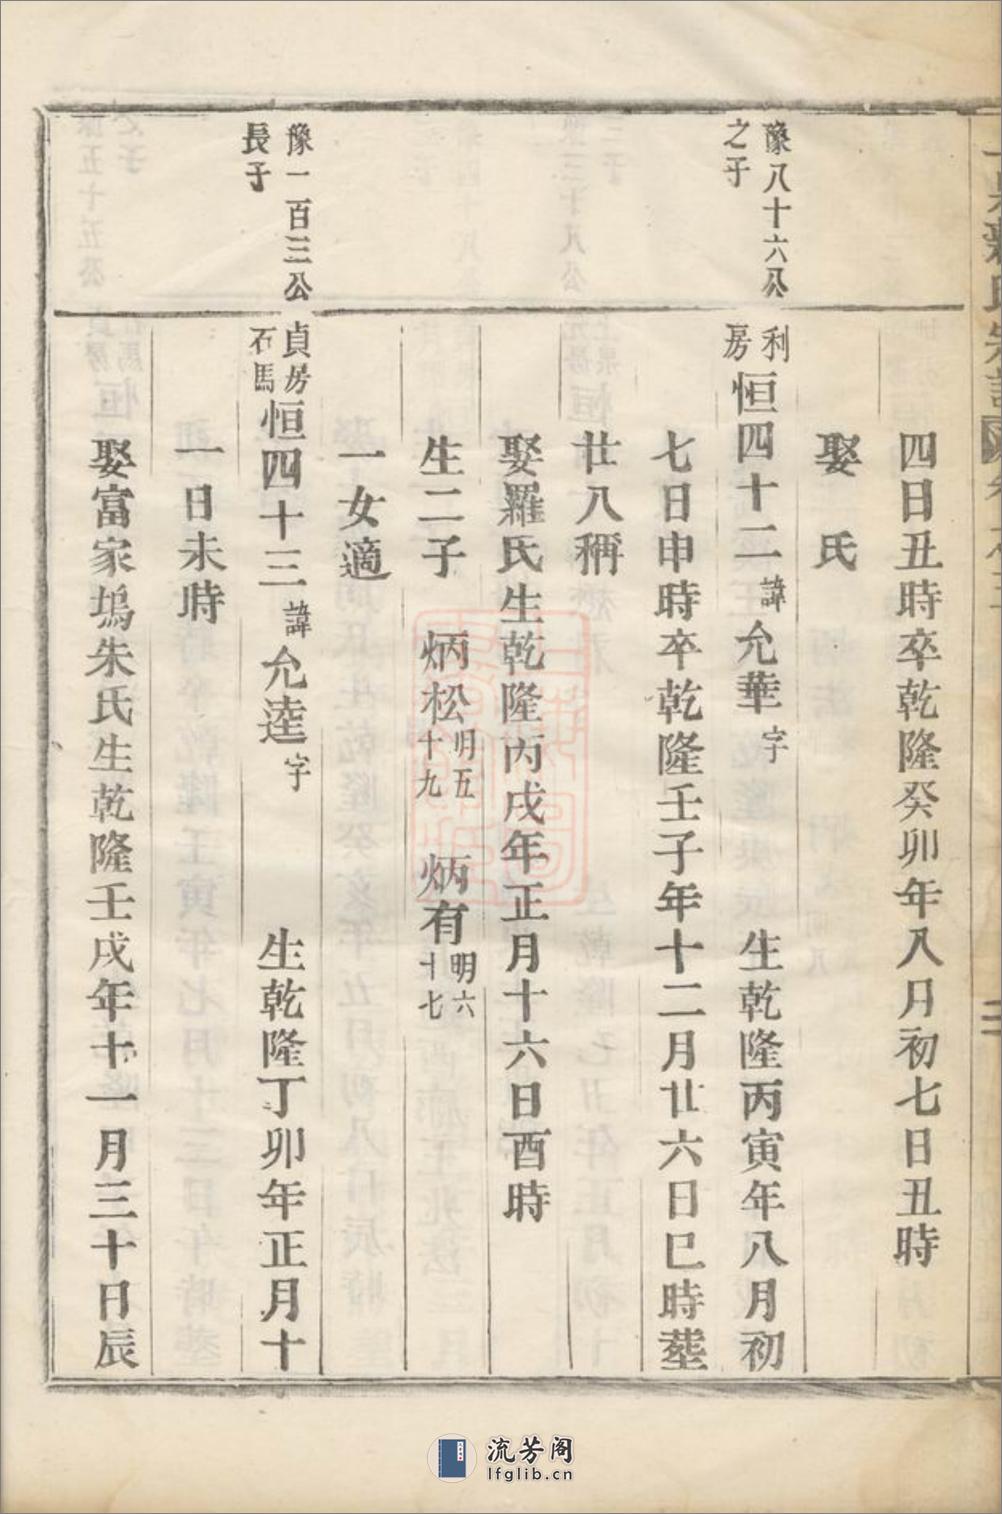 四日丑時卒乾隆癸卯年八月初七日丑時
娶　氏
豫八十六公
之子
利
房
恒四十二諱允華字　生乾隆丙寅年八月初
七日申時卒乾隆壬子年十二月廿六日巳時葬
廿八稱
娶羅氏生乾隆丙戌年正月十六日酉時
生二子　炳松明五十九　炳有明六十七
一女適
豫一百三公
長子
貞房
石馬
恒四十三諱允逵字　生乾隆丁卯年正月十
一日未時
娶富家塢朱氏生乾隆壬戌年十一月三十日辰
流芳阁
lfglib.cn